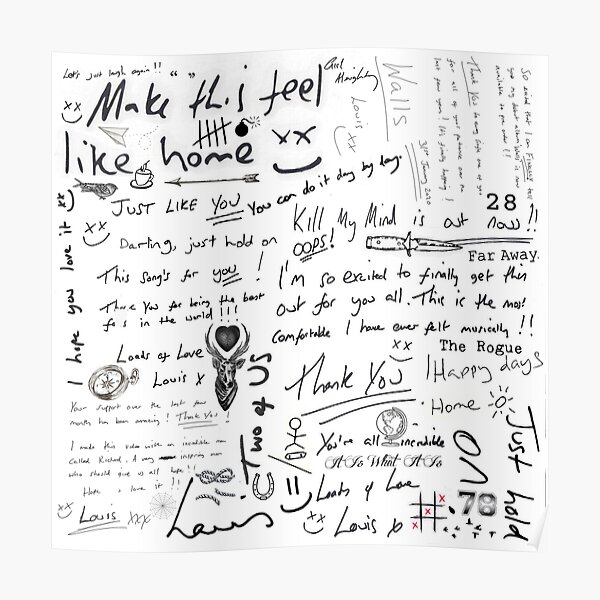 Let's just laugh again!!
" "
Make this feel
like home
xx
xx
Girl
Almighty
Walls
Louis xx
31st January 2020
So excited that I can FINALLY tell
you my debut album Walls is now
available to pre order!!
Thank You to every single one of you
for all of your patience over the
last few years! It's finally happening!
28
I hope you love it xx
xx
JUST LIKE YOU
You can do it day by day.
Darling, just hold on
Kill My Mind is out now!!
OOPS!
Far Away
This song's for you!
I'm so excited to finally get this
out for you all. This is the most
comfortable I have ever felt musically!!
xx
Thank You for being the best
fans in the world!!!
Loads of Love
Louis x
The Rogue
Happy days
Home
Thank You
Your support over the last few
months has been amazing! Thank You!
I made this video with an incredible man
called Richard. A very inspiring man
who should give us all hope!!
Hope you love it!!
xx
Louis xxx
Two of US
Louis
You're all incredible
It Is What It Is
Loads of Love
xx
Louis x
x
x
x
78
Just hold
on